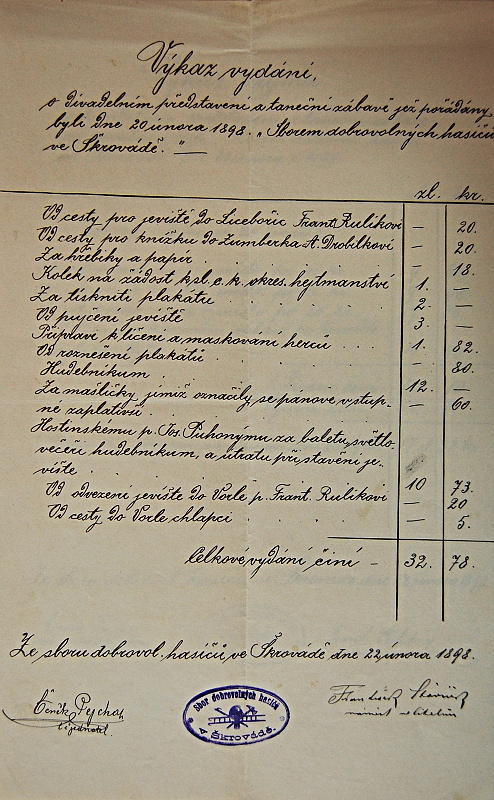 Výkaz vydání,
o divadelním představení a taneční zábavě jež pořádány
byli dne 20 února 1898. „Sborem dobrovolných hasičů
ve Škrovádě.“ —
zl. kr.
Od cesty pro jeviště do Licebořic Frant. Rulíkovi — 20.
Od cesty pro knížku do Žumberka A. Drobílkovi — 20.
Za hřebíky a papír . . . 18.
Kolek na žádost k sl. c. k. okres. hejtmanství 1. —
Za tisknití plakátů . . . 2. —
Od pujčení jeviště . . . 3. —
Přípravě k líčení a maskování herců . . . 1. 82.
Od roznešení plakátů . . . — 80.
Hudebníkum . . . 12. —
Za mašličky jimiž označily se pánové vstup- — 60.
né zaplativší . . .
Hostinskému p. Jos. Puhonýmu za baletu, světlo
večeři hudebníkum, a útratu při stavění je-
viště . . . 10 73.
Od odvezení jeviště do Vorle p. Frant. Rulíkovi — 20
Od cesty do Vorle chlapci . . . — 5.
Celkové vydání činí — 32. 78.
Ze sboru dobrovol. hasičů ve Škrovádě dne 22 února 1898.
Čeněk Pochar
Sbor dobrovolných hasičů
v Škrovádě.
František